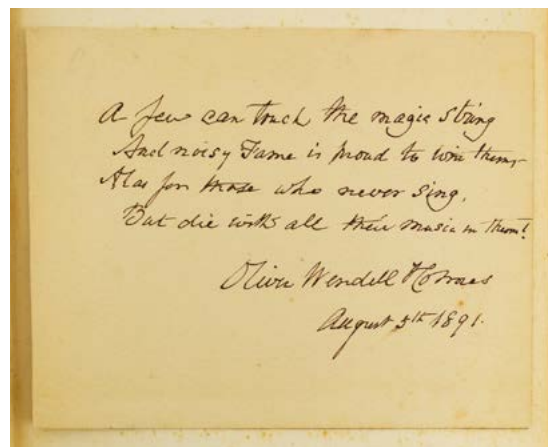 A few can touch the magic string
And noisy Fame is proud to win them,—
Alas for those who never sing,
But die with all their music in them!
Oliver Wendell Holmes
August 5th 1891.